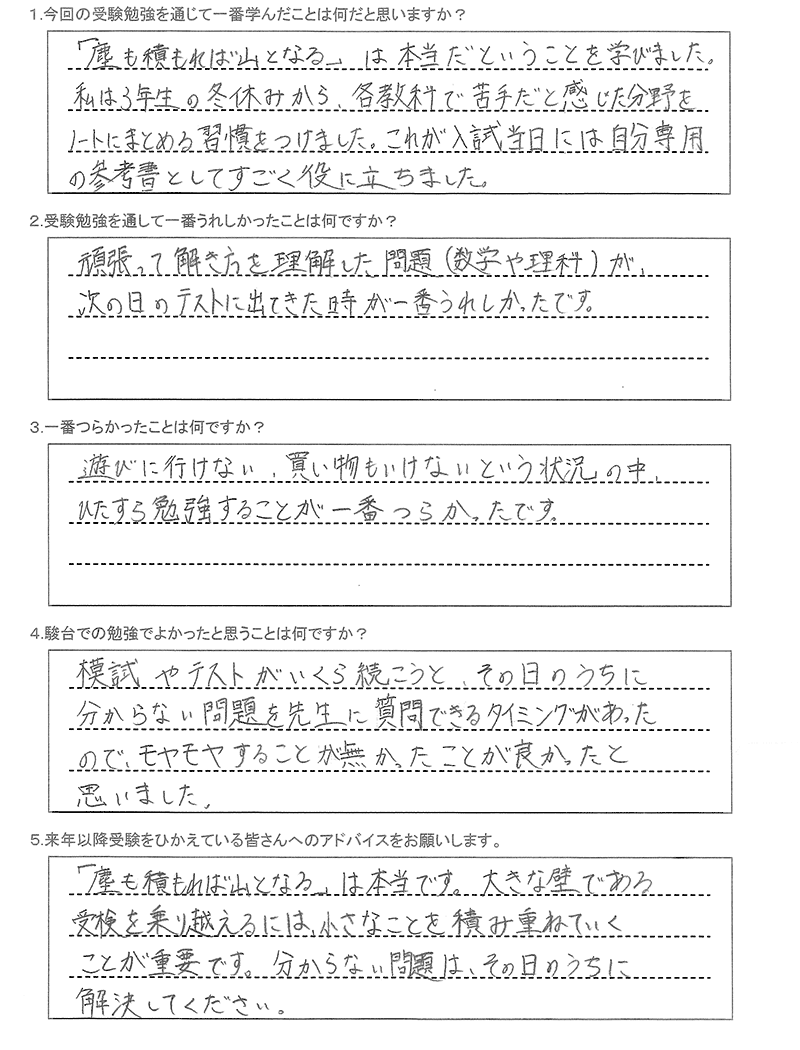 1.今回の受験勉強を通じて一番学んだことは何だと思いますか？
「塵も積もれば山となる」は本当だということを学びました。
私は3年生の冬休みから、各教科で苦手だと感じた分野を
ノートにまとめる習慣をつけました。これが入試当日には自分専用
の参考書としてすごく役に立ちました。
2.受験勉強を通して一番うれしかったことは何ですか？
頑張って解き方を理解した問題(数学や理科)が、
次の日のテストに出てきた時が一番うれしかったです。
3.一番つらかったことは何ですか？
遊びに行けない、買い物もいけないという状況の中、
ひたすら勉強することが一番つらかったです。
4.駿台での勉強でよかったと思うことは何ですか？
模試やテストがいくら続こうと、その日のうちに
分からない問題を先生に質問できるタイミングがあった
ので、モヤモヤすることが無かったことが良かったと
思いました。
5.来年以降受験をひかえている皆さんへのアドバイスをお願いします。
「塵も積もれば山となる」は本当です。大きな壁である
受検を乗り越えるには、小さなことを積み重ねていく
ことが重要です。分からない問題は、その日のうちに
解決してください。